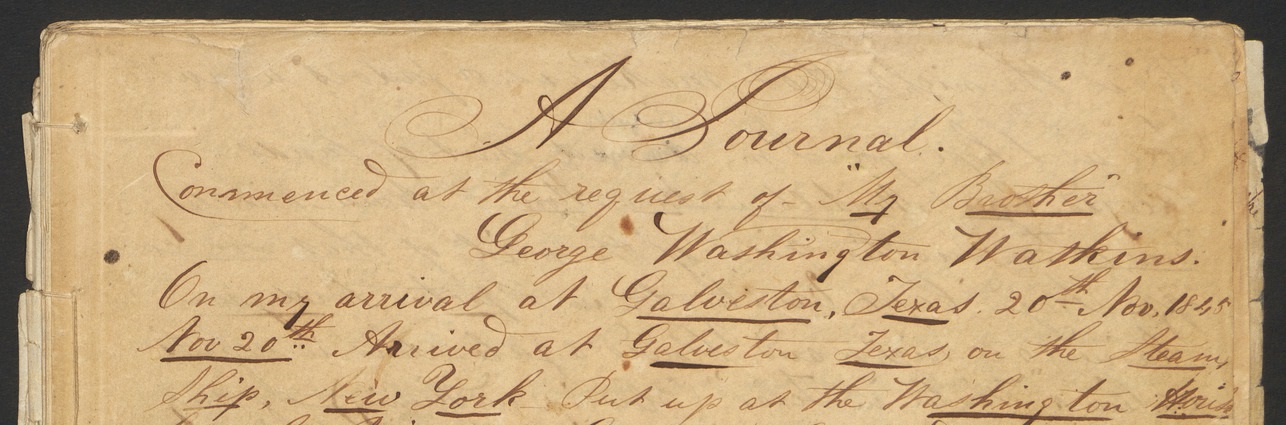 A Journal.
Commenced at the request of "My Brother"
George Washington Watkins.
On my arrival at Galveston, Texas. 20th Nov. 1845
Nov 20th Arrived at Galveston Texas, on the Steam
Ship, New York - Put up at the Washington House